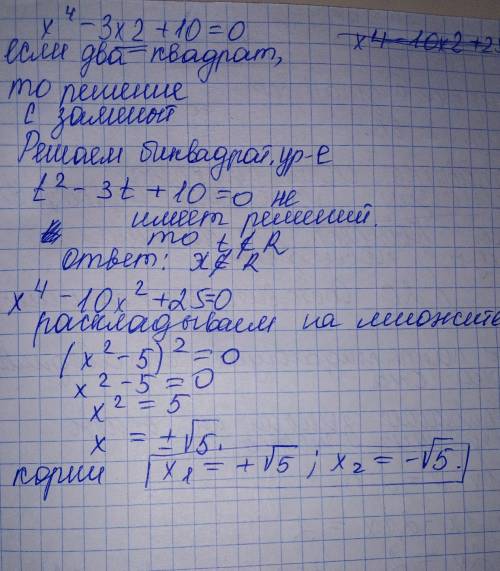 x⁴ - 3x2 + 10 = 0
x4 - 10x2 + 25
если два = квадрат,
то решение
с заменой
Решаем биквадрат. ур-е
t² - 3t + 10 = 0 не
имеет решений.
то t ∉ R
ответ: x ∉ R
x⁴ - 10x² + 25 = 0
раскладываем на множите
(x² - 5)² = 0
x² - 5 = 0
x² = 5
x = ±√5.
корни x₁ = +√5 ; x₂ = -√5.